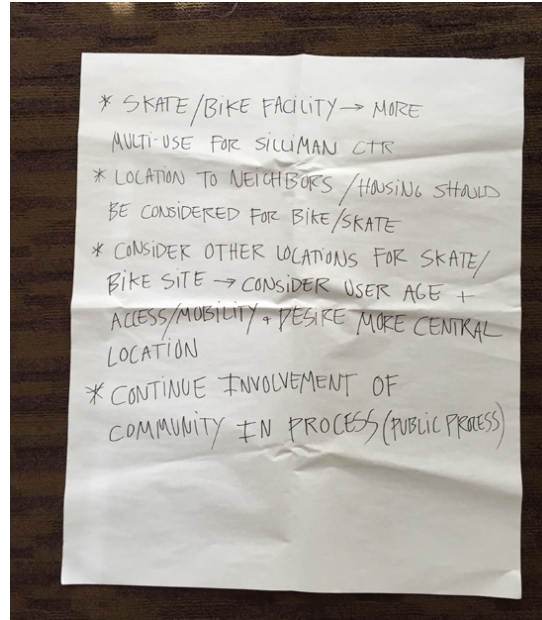 * SKATE/BIKE FACILITY → MORE
MULTI-USE FOR SILLIMAN CTR
* LOCATION TO NEIGHBORS/HOUSING SHOULD
BE CONSIDERED FOR BIKE/SKATE
* CONSIDER OTHER LOCATIONS FOR SKATE/
BIKE SITE → CONSIDER USER AGE +
ACCESS/MOBILITY + DESIRE MORE CENTRAL
LOCATION
* CONTINUE INVOLVEMENT OF
COMMUNITY IN PROCESS (PUBLIC PROCESS)